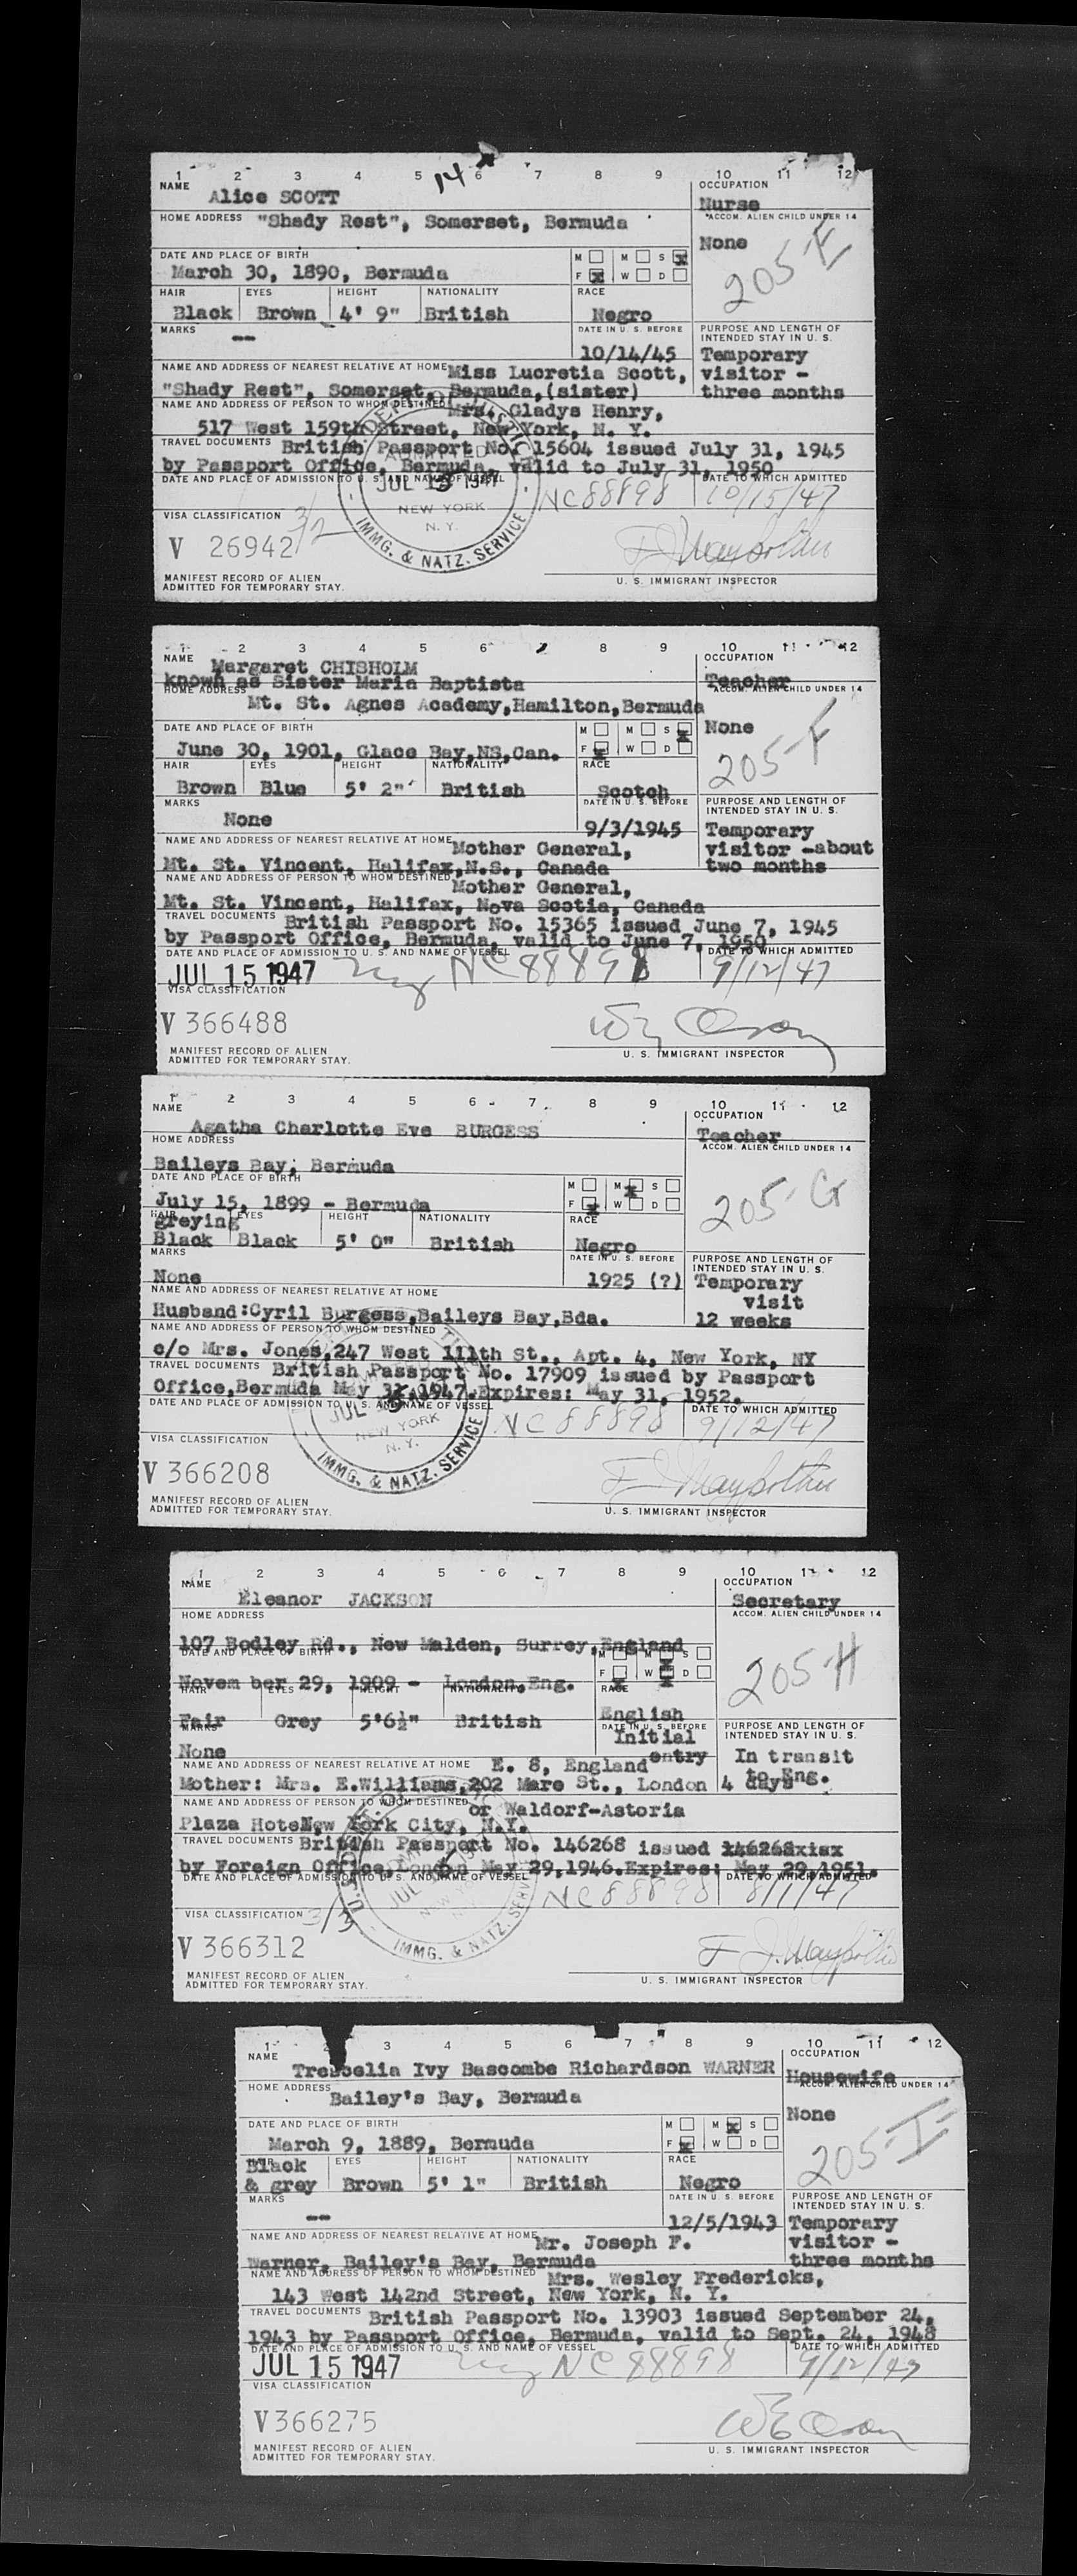 1 2 3 4 5 14 6 7 8 9 10 11 12
NAME Alice SCOTT
OCCUPATION Nurse
HOME ADDRESS "Shady Rest", Somerset, Bermuda
ACCOM. ALIEN CHILD UNDER 14 None
205-E
DATE AND PLACE OF BIRTH M M S
March 30, 1890, Bermuda F W D
HAIR EYES HEIGHT NATIONALITY RACE
Black Brown 4' 9" British Negro
MARKS -- DATE IN U. S. BEFORE 10/14/45
PURPOSE AND LENGTH OF INTENDED STAY IN U. S.
Temporary visitor - three months
NAME AND ADDRESS OF NEAREST RELATIVE AT HOME Miss Lucretia Scott,
"Shady Rest", Somerset, Bermuda,(sister)
NAME AND ADDRESS OF PERSON TO WHOM DESTINED Mrs. Gladys Henry,
517 West 159th Street, New York, N. Y.
TRAVEL DOCUMENTS British Passport No. 15604 issued July 31, 1945
by Passport Office, Bermuda, valid to July 31, 1950
DATE AND PLACE OF ADMISSION TO U. S. AND NAME OF VESSEL NC 88898
DATE TO WHICH ADMITTED 10/15/47
ADMITTED
JUL 1947
NEW YORK
N. Y.
IMMG. & NATZ. SERVICE
VISA CLASSIFICATION 3/2
V 26942
MANIFEST RECORD OF ALIEN
ADMITTED FOR TEMPORARY STAY.
U. S. IMMIGRANT INSPECTOR
1 2 3 4 5 6 7 8 9 10 11 12
NAME Margaret CHISHOLM
known as Sister Maria Baptista
OCCUPATION Teacher
HOME ADDRESS
Mt. St. Agnes Academy,Hamilton,Bermuda
ACCOM. ALIEN CHILD UNDER 14 None
205-F
DATE AND PLACE OF BIRTH M M S
June 30, 1901, Glace Bay,NS,Can. F W D
HAIR EYES HEIGHT NATIONALITY RACE
Brown Blue 5' 2" British Scotch
MARKS None DATE IN U. S. BEFORE 9/3/1945
PURPOSE AND LENGTH OF INTENDED STAY IN U. S.
Temporary visitor -about two months
NAME AND ADDRESS OF NEAREST RELATIVE AT HOME Mother General,
Mt. St. Vincent, Halifax,N.S., Canada
NAME AND ADDRESS OF PERSON TO WHOM DESTINED Mother General,
Mt. St. Vincent, Halifax, Nova Scotia, Canada
TRAVEL DOCUMENTS British Passport No. 15365 issued June 7, 1945
by Passport Office, Bermuda, valid to June 7, 1950
DATE AND PLACE OF ADMISSION TO U. S. AND NAME OF VESSEL
JUL 15 1947 NY NC 88898
DATE TO WHICH ADMITTED 9/12/47
VISA CLASSIFICATION
V 366488
MANIFEST RECORD OF ALIEN
ADMITTED FOR TEMPORARY STAY.
U. S. IMMIGRANT INSPECTOR
1 2 3 4 5 6 7 8 9 10 11 12
NAME Agatha Charlotte Eve BURGESS
OCCUPATION Teacher
HOME ADDRESS
Baileys Bay, Bermuda
ACCOM. ALIEN CHILD UNDER 14
205-G
DATE AND PLACE OF BIRTH M M S
July 15, 1899 - Bermuda F W D
HAIR EYES HEIGHT NATIONALITY RACE
greying
Black Black 5' 0" British Negro
MARKS None DATE IN U. S. BEFORE 1925 (?)
PURPOSE AND LENGTH OF INTENDED STAY IN U. S.
Temporary visit
12 weeks
NAME AND ADDRESS OF NEAREST RELATIVE AT HOME
Husband:Cyril Burgess,Baileys Bay,Bda.
NAME AND ADDRESS OF PERSON TO WHOM DESTINED
c/o Mrs. Jones,247 West 111th St., Apt. 4, New York, NY
TRAVEL DOCUMENTS British Passport No. 17909 issued by Passport
Office,Bermuda May 31,1947.Expires: May 31, 1952.
DATE AND PLACE OF ADMISSION TO U. S. AND NAME OF VESSEL NC 88898
DATE TO WHICH ADMITTED 9/12/47
JUL
NEW YORK
N. Y.
IMMG. & NATZ. SERVICE
VISA CLASSIFICATION
V 366208
MANIFEST RECORD OF ALIEN
ADMITTED FOR TEMPORARY STAY.
U. S. IMMIGRANT INSPECTOR
1 2 3 4 5 6 7 8 9 10 11 12
NAME Eleanor JACKSON
OCCUPATION Secretary
HOME ADDRESS
107 Bodley Rd., New Malden, Surrey,England
ACCOM. ALIEN CHILD UNDER 14
205-H
DATE AND PLACE OF BIRTH M M S
Novem ber 29, 1909 - London,Eng. F W D
HAIR EYES HEIGHT NATIONALITY RACE
Fair Grey 5'6½" British English
MARKS None DATE IN U. S. BEFORE Initial entry
PURPOSE AND LENGTH OF INTENDED STAY IN U. S.
In transit to Eng.
4 days
NAME AND ADDRESS OF NEAREST RELATIVE AT HOME E. 8, England
Mother: Mrs. E.Williams,202 Mare St., London
NAME AND ADDRESS OF PERSON TO WHOM DESTINED or Waldorf-Astoria
Plaza Hotel,New York City, N.Y.
TRAVEL DOCUMENTS British Passport No. 146268 issued
by Foreign Office,London May 29,1946.Expires: May 29,1951.
DATE AND PLACE OF ADMISSION TO U. S. AND NAME OF VESSEL NC 88898
DATE TO WHICH ADMITTED 8/1/47
JUL
NEW YORK
IMMG. & NATZ. SERV
VISA CLASSIFICATION 3/3
V 366312
MANIFEST RECORD OF ALIEN
ADMITTED FOR TEMPORARY STAY.
U. S. IMMIGRANT INSPECTOR
1 2 3 4 5 6 7 8 9 10 11 12
NAME Ivy Bascombe Richardson WARNER
OCCUPATION Housewife
HOME ADDRESS
Bailey's Bay, Bermuda
ACCOM. ALIEN CHILD UNDER 14 None
205-I
DATE AND PLACE OF BIRTH M M S
March 9, 1889, Bermuda F W D
HAIR EYES HEIGHT NATIONALITY RACE
Black
& grey Brown 5' 1" British Negro
MARKS -- DATE IN U. S. BEFORE 12/5/1943
PURPOSE AND LENGTH OF INTENDED STAY IN U. S.
Temporary visitor - three months
NAME AND ADDRESS OF NEAREST RELATIVE AT HOME Mr. Joseph F.
Warner, Bailey's Bay, Bermuda
NAME AND ADDRESS OF PERSON TO WHOM DESTINED Mrs. Wesley Fredericks,
143 West 142nd Street, New York, N. Y.
TRAVEL DOCUMENTS British Passport No. 13903 issued September 24,
1943 by Passport Office, Bermuda, valid to Sept. 24, 1948
DATE AND PLACE OF ADMISSION TO U. S. AND NAME OF VESSEL
JUL 15 1947 NY NC 88898
DATE TO WHICH ADMITTED 9/12/47
VISA CLASSIFICATION
V 366275
MANIFEST RECORD OF ALIEN
ADMITTED FOR TEMPORARY STAY.
U. S. IMMIGRANT INSPECTOR